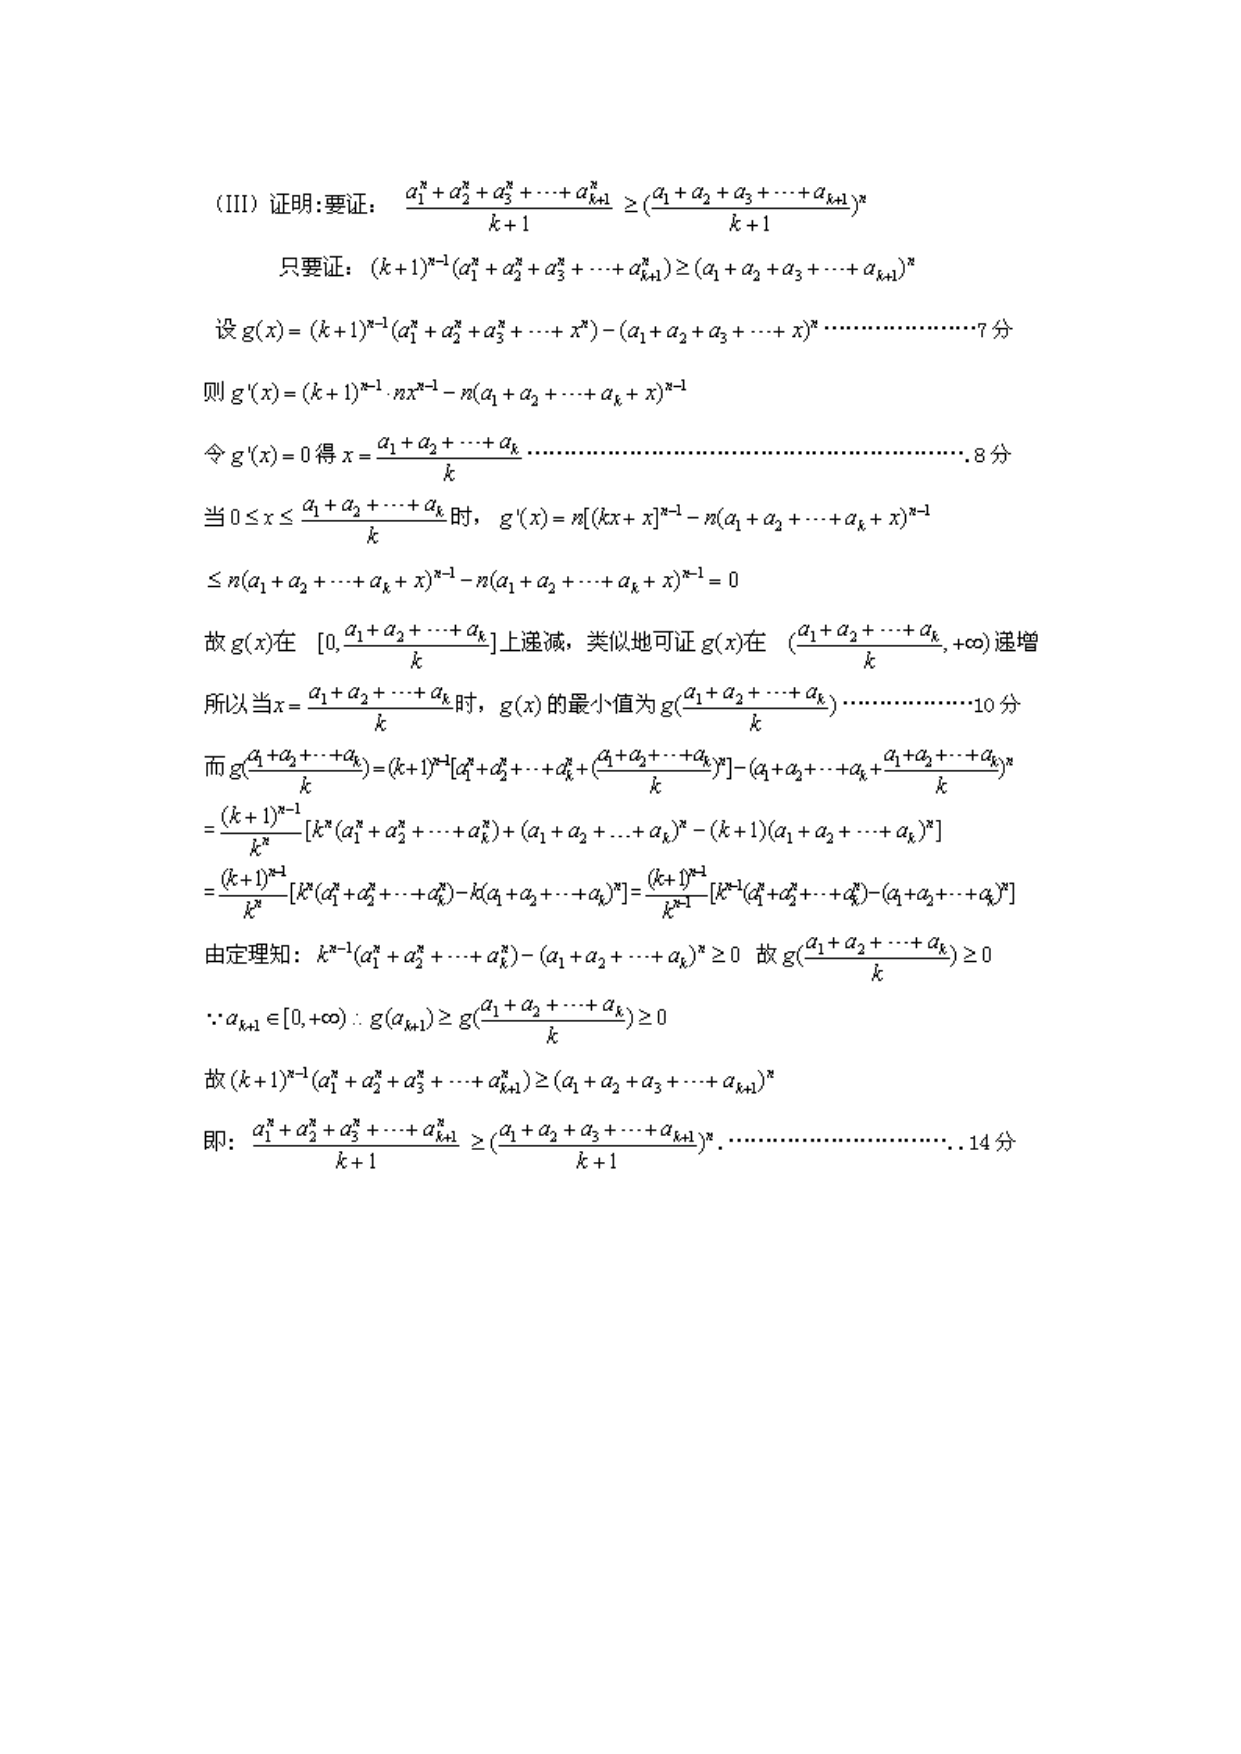 （III）证明:要证： $\frac{a_1^n+a_2^n+a_3^n+\cdots+a_{k+1}^n}{k+1} \geq (\frac{a_1+a_2+a_3+\cdots+a_{k+1}}{k+1})^n$
只要证： $(k+1)^{n-1}(a_1^n+a_2^n+a_3^n+\cdots+a_{k+1}^n) \geq (a_1+a_2+a_3+\cdots+a_{k+1})^n$
设 $g(x)=(k+1)^{n-1}(a_1^n+a_2^n+a_3^n+\cdots+x^n)-(a_1+a_2+a_3+\cdots+x)^n$ …………………7 分
则 $g'(x)=(k+1)^{n-1}\cdot nx^{n-1}-n(a_1+a_2+\cdots+a_k+x)^{n-1}$
令 $g'(x)=0$ 得 $x=\frac{a_1+a_2+\cdots+a_k}{k}$ ………………………………………………….8 分
当 $0\leq x\leq \frac{a_1+a_2+\cdots+a_k}{k}$ 时， $g'(x)=n[(kx+x]^{n-1}-n(a_1+a_2+\cdots+a_k+x)^{n-1}$
$\leq n(a_1+a_2+\cdots+a_k+x)^{n-1}-n(a_1+a_2+\cdots+a_k+x)^{n-1}=0$
故 $g(x)$在 $[0,\frac{a_1+a_2+\cdots+a_k}{k}]$上递减，类似地可证 $g(x)$在 $(\frac{a_1+a_2+\cdots+a_k}{k},+\infty)$ 递增
所以当$x=\frac{a_1+a_2+\cdots+a_k}{k}$时，$g(x)$ 的最小值为 $g(\frac{a_1+a_2+\cdots+a_k}{k})$ ………………10 分
而 $g(\frac{a_1+a_2+\cdots+a_k}{k})=(k+1)^{n-1}[a_1^n+a_2^n+\cdots+a_k^n+(\frac{a_1+a_2+\cdots+a_k}{k})^n]-(a_1+a_2+\cdots+a_k+\frac{a_1+a_2+\cdots+a_k}{k})^n$
$=\frac{(k+1)^{n-1}}{k^n}[k^n(a_1^n+a_2^n+\cdots+a_k^n)+(a_1+a_2+\ldots+a_k)^n-(k+1)(a_1+a_2+\cdots+a_k)^n]$
$=\frac{(k+1)^{n-1}}{k^n}[k^n(a_1^n+a_2^n+\cdots+a_k^n)-k(a_1+a_2+\cdots+a_k)^n]=\frac{(k+1)^{n-1}}{k^{n-1}}[k^{n-1}(a_1^n+a_2^n+\cdots+a_k^n)-(a_1+a_2+\cdots+a_k)^n]$
由定理知： $k^{n-1}(a_1^n+a_2^n+\cdots+a_k^n)-(a_1+a_2+\cdots+a_k)^n\geq 0$ 故 $g(\frac{a_1+a_2+\cdots+a_k}{k})\geq 0$
$\because a_{k+1}\in[0,+\infty)\therefore g(a_{k+1})\geq g(\frac{a_1+a_2+\cdots+a_k}{k})\geq 0$
故 $(k+1)^{n-1}(a_1^n+a_2^n+a_3^n+\cdots+a_{k+1}^n)\geq(a_1+a_2+a_3+\cdots+a_{k+1})^n$
即： $\frac{a_1^n+a_2^n+a_3^n+\cdots+a_{k+1}^n}{k+1} \geq (\frac{a_1+a_2+a_3+\cdots+a_{k+1}}{k+1})^n$ . …………………………..14 分